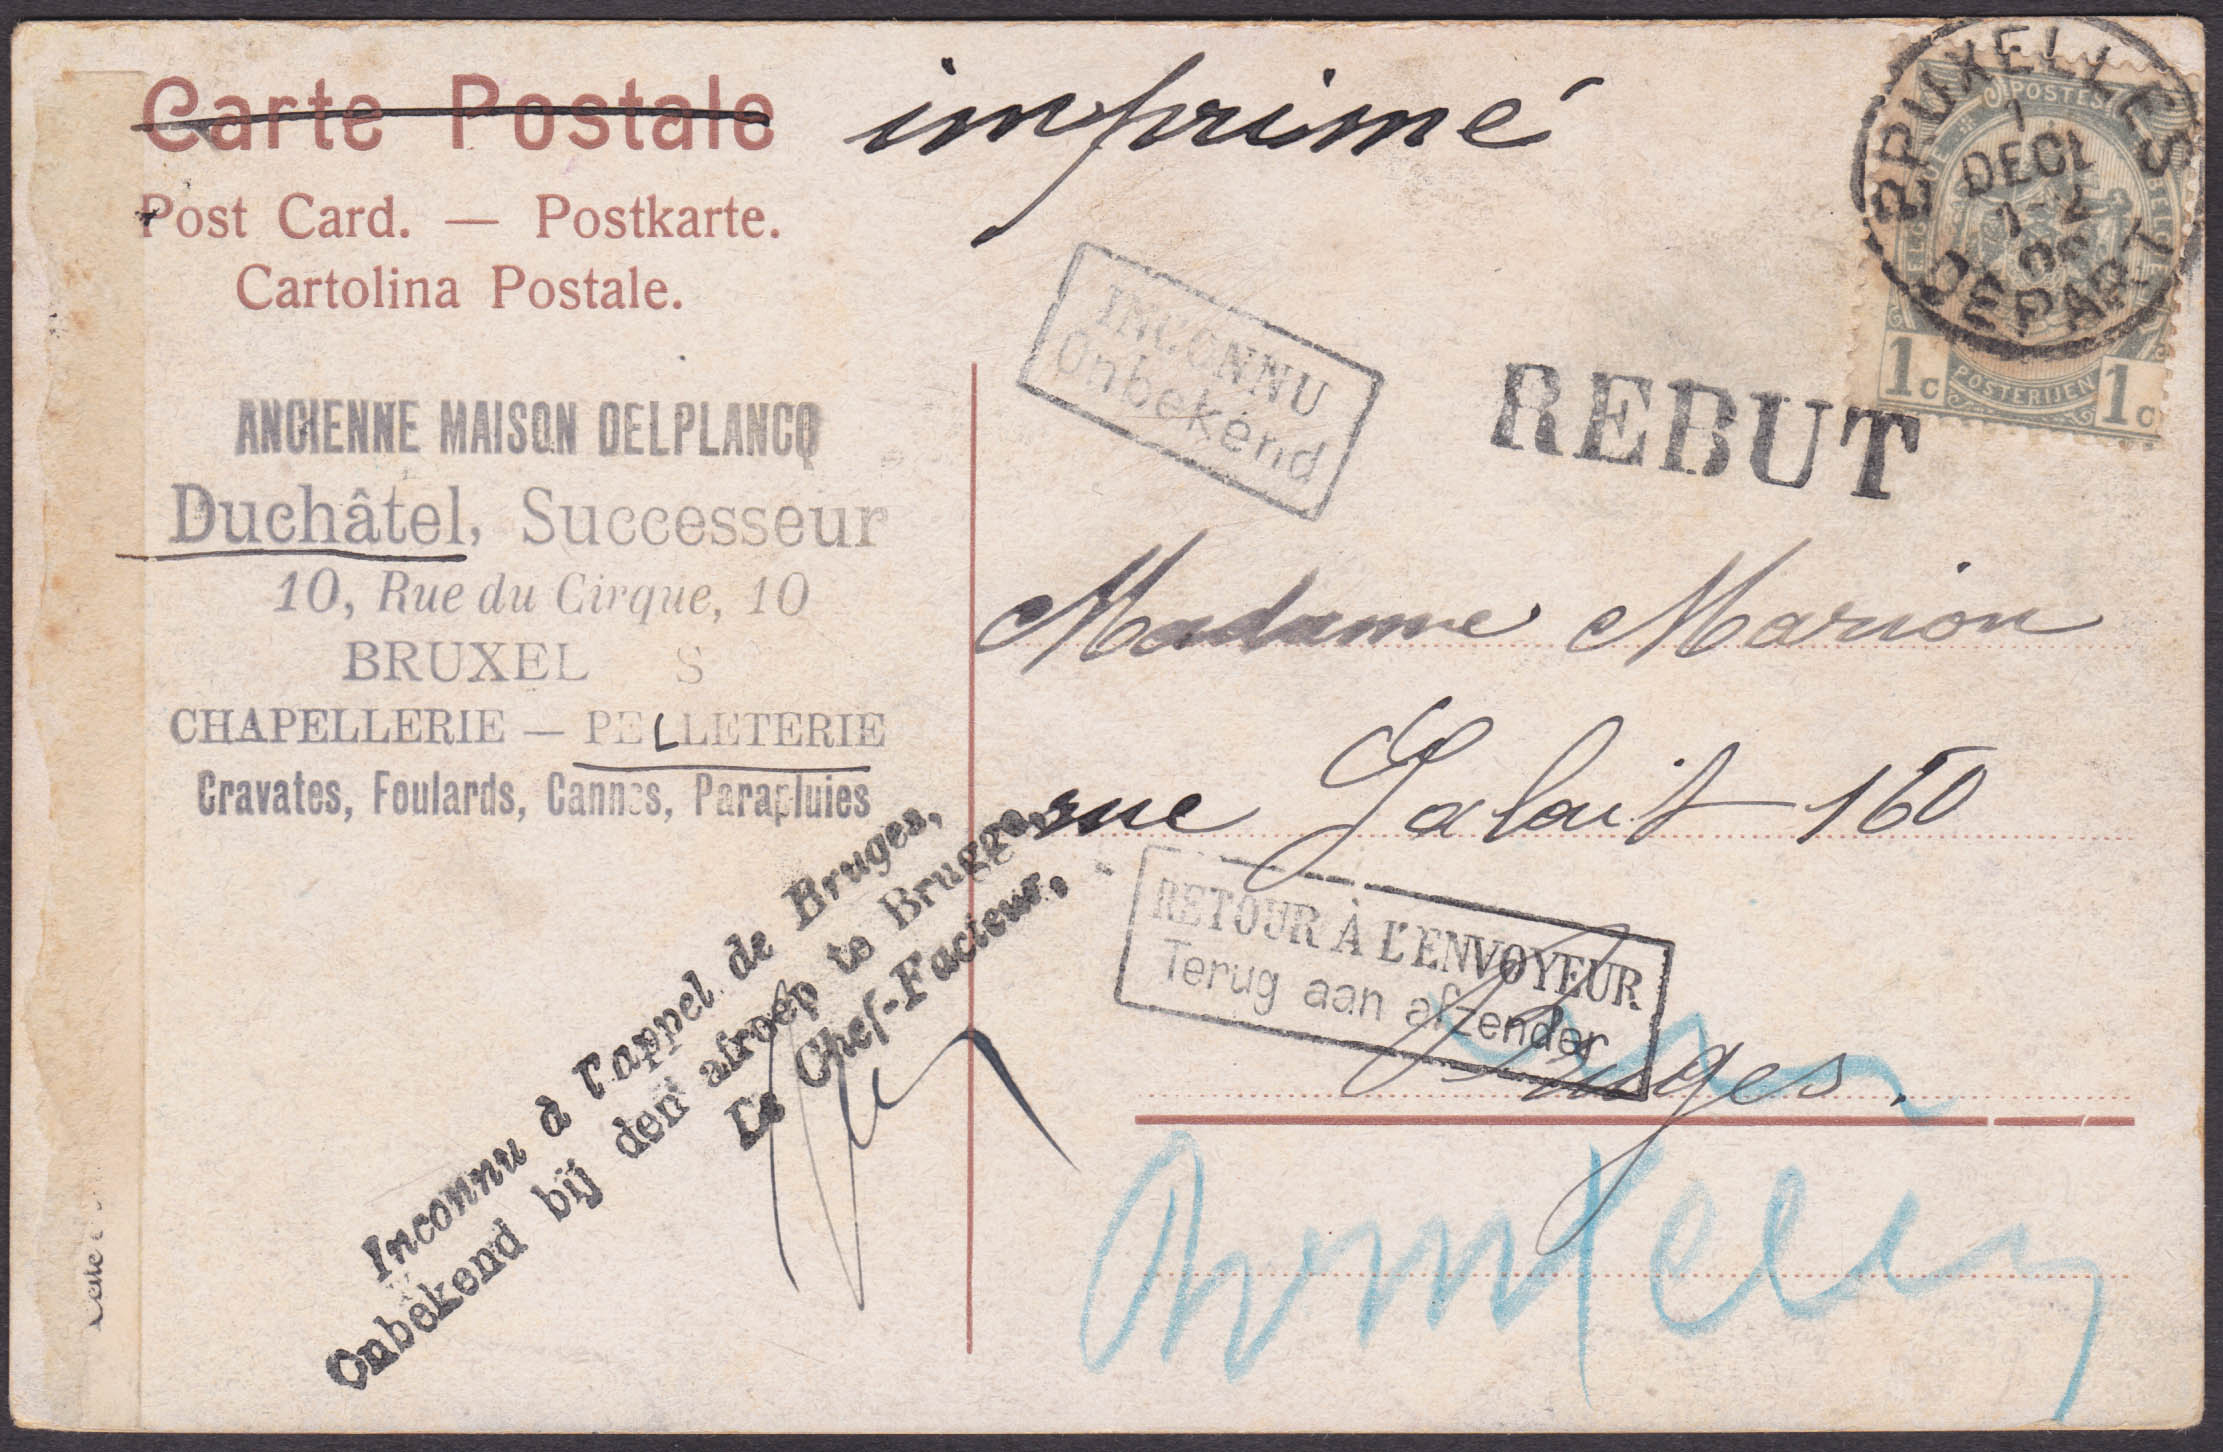 Carte Postale imprimé
Post Card. — Postkarte.
Cartolina Postale.
BRUXELLES
1
DECE
1-2
DEPART
POSTES
BELGIQUE
POSTERIJEN
1c 1c
INCONNU
Onbekend
REBUT
ANCIENNE MAISON DELPLANCQ
Duchâtel, Successeur
10, Rue du Cirque, 10
BRUXEL S
CHAPELLERIE — PELLETERIE
Cravates, Foulards, Cannes, Parapluies
Madame Marion
rue Galait 160
Bruges.
RETOUR À L'ENVOYEUR
Terug aan afzender
Inconnu à l'appel de Bruges,
Onbekend bij den afroep te Brugge,
Le Chef-Facteur,